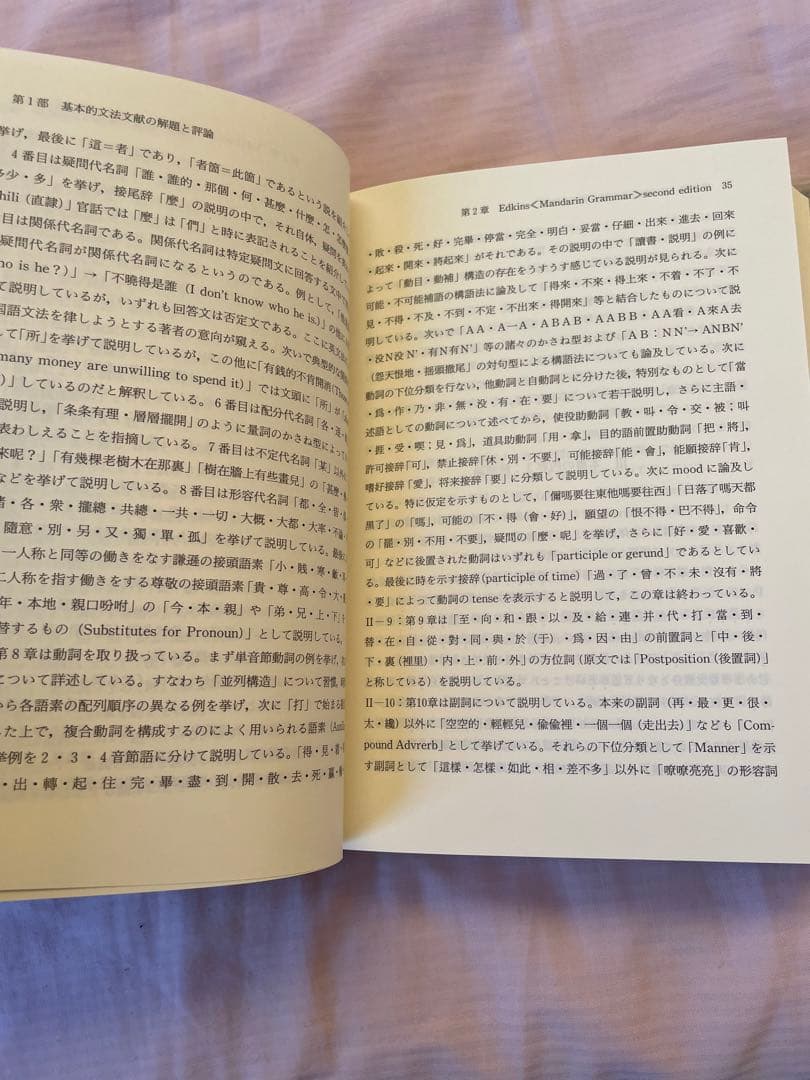 第1部　基本的文法文献の解題と評論
挙げ，最後に「這＝者」であり，「者箇＝此箇」であるという説を
4番目は疑問代名詞「誰・誰的・那個・何・甚麼・什麼・怎・
多少・多」を挙げ，接尾辞「麼」の説明の中で，それ自体，疑問
hili (直隷)」官話では「麼」は「們」と時に表記されることを紹介し
目は関係代名詞である。関係代名詞は特定疑問文に回答する文中で
疑問代名詞が関係代名詞になるというのである。例として，
ho is he？)」→「不曉得是誰 (I don't know who he is.)」の
て説明しているが，いずれも回答文は否定文である。ここに
国語文法を律しようとする著者の意向が窺える。次いで典型的な
して「所」を挙げて説明しているが，この他に「有銭的不肯開
many money are unwilling to spend it)」では文頭に「所」が
)」しているのだと解釈している。6番目は配分代名詞「各・逐・
説明し，「条条有理・層層擺開」のように量詞のかさね型によっ
表わしえることを指摘している。7番目は不定代名詞「某」以外
来呢？」「有幾棵老樹木在那裏」「樹在牆上有些畫兒」の「甚麼・
などを挙げて説明している。8番目は形容代名詞「都・全・
諸・各・衆・攏總・共總・一共・一切・大概・大都・大率・不論・
隨意・別・另・又・獨・單・孤」を挙げて説明している。最後に
一人称と同等の働きをなす謙遜の接頭語素「小・賎・寒・敝・
二人称を指す働きをする尊敬の接頭語素「貴・尊・高・令・
年・本地・親口吩咐」の「今・本・親」や「弟・兄・上・下・
替するもの (Substitutes for Pronoun)」として説明している。
第8章は動詞を取り扱っている。まず単音節動詞の例を挙げ，
について詳述している。すなわち「並列構造」について習慣，
から各語素の配列順序の異なる例を挙げ，次に「打」で始まる
した上で，複合動詞を構成するのによく用いられる語素
挙例を2・3・4音節語に分けて説明している。「得・見・着・
・出・轉・起・住・完・畢・盡・到・開・散・去・死・贏・
第2章　Edkins＜Mandarin Grammar＞second edition　35
・敗・殺・死・好・完畢・停當・完全・明白・妥當・仔細・出來・進去・回來
・起來・開來・將起來」がそれである。その説明の中で「讀書・説明」の例に
よって「動目・動補」構造の存在をうすうす感じている説明が見られる。次に
可能・不可能補語の構語法に論及して「得來・不來・得上來・不着・不了・不
見・不得・不及・不到・不定・不出來・得開來」等と結合したものについて説
明している。次いで「AA・A一A・ABAB・AABB・AA看・A來A去
・没N没N'・有N有N'」等の諸々のかさね型および「AB：NN'→ANBN'
(怨天恨地・揺頭撒尾」の対句型による構語法についても論及している。次に
動詞の下位分類を行ない，他動詞と自動詞とに分けた後，特別なものとして「當
・爲・作・乃・非・無・没・有・在・要」について若干説明し，さらに主語・
述語としての動詞について述べてから，使役助動詞「教・叫・令・交・被；叫
・捱・受・喫；見・爲」，道具助動詞「用・拿」，目的語前置助動詞「把・將」，
許可接辞「可」，禁止接辞「休・別・不要」，可能接辞「能・會」，能願接辞「肯」，
嗜好接辞「愛」，将来接辞「要」に分類して説明している。次に mood に論及し
ている。特に仮定を示すものとして，「儞嗎要往東他嗎要往西」「日落了嗎天都
黒了」の「嗎」，可能の「不・得（會・好）」，願望の「恨不得・巴不得」，命令
の「罷・別・不用・不要」，疑問の「麼・呢」を挙げ，さらに「好・愛・喜歡・
可」などに後置された動詞はいずれも「participle or gerund」であるとしてい
る。最後に時を示す接辞 (participle of time)「過・了・曾・不・未・没有・將
・要」によって動詞の tense を表示すると説明して，この章は終わっている。
Ⅱ－9：第9章は「至・向・和・跟・以・及・給・連・并・代・打・當・到・
替・在・自・從・對・同・與・於（于）・爲・因・由」の前置詞と「中・後・
下・裏（裡里）・内・上・前・外」の方位詞（原文では「Postposition（後置詞)」
と称している）を説明している。
Ⅱ－10：第10章は副詞について説明している。本来の副詞（再・最・更・很・
太・纔）以外に「空空的・輕輕兒・偸偸裡・一個一個（走出去）」なども「Com-
pound Advrerb」として挙げている。それらの下位分類として「Manner」を示
す副詞として「這樣・怎樣・如此・相・差不多」以外に「嘹嘹亮亮」の形容詞